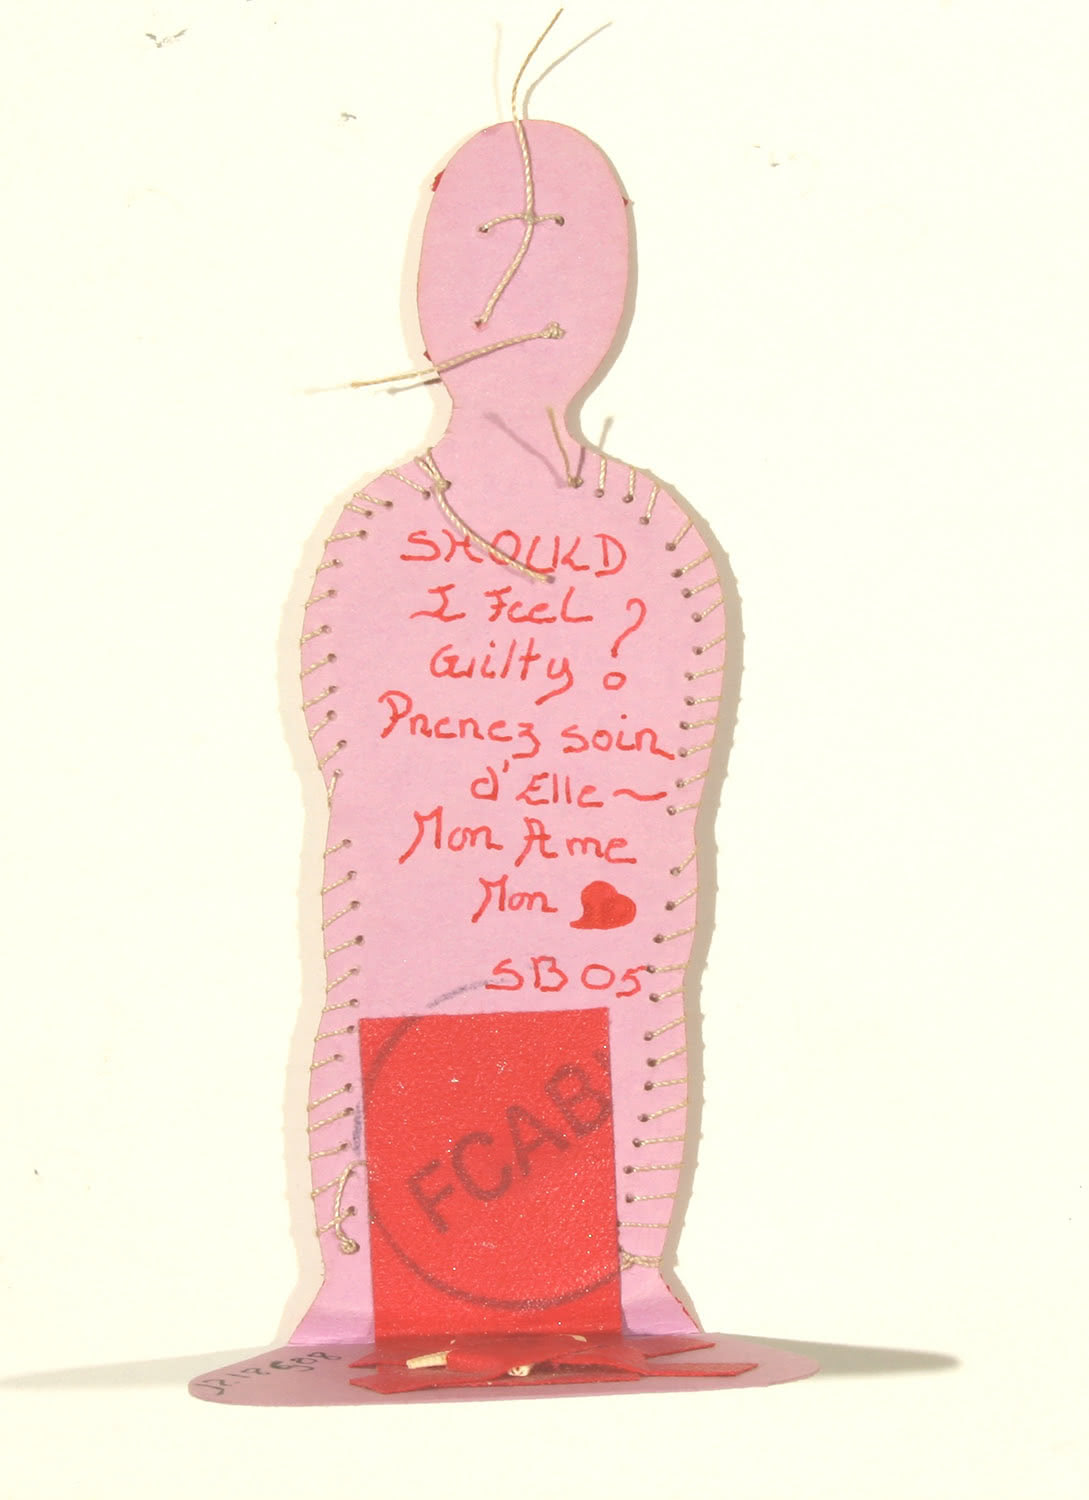 SHOULD
I Feel
Guilty ?
Prenez soin
d'Elle ~
Mon Ame
Mon ♥
SB 05
FCAB